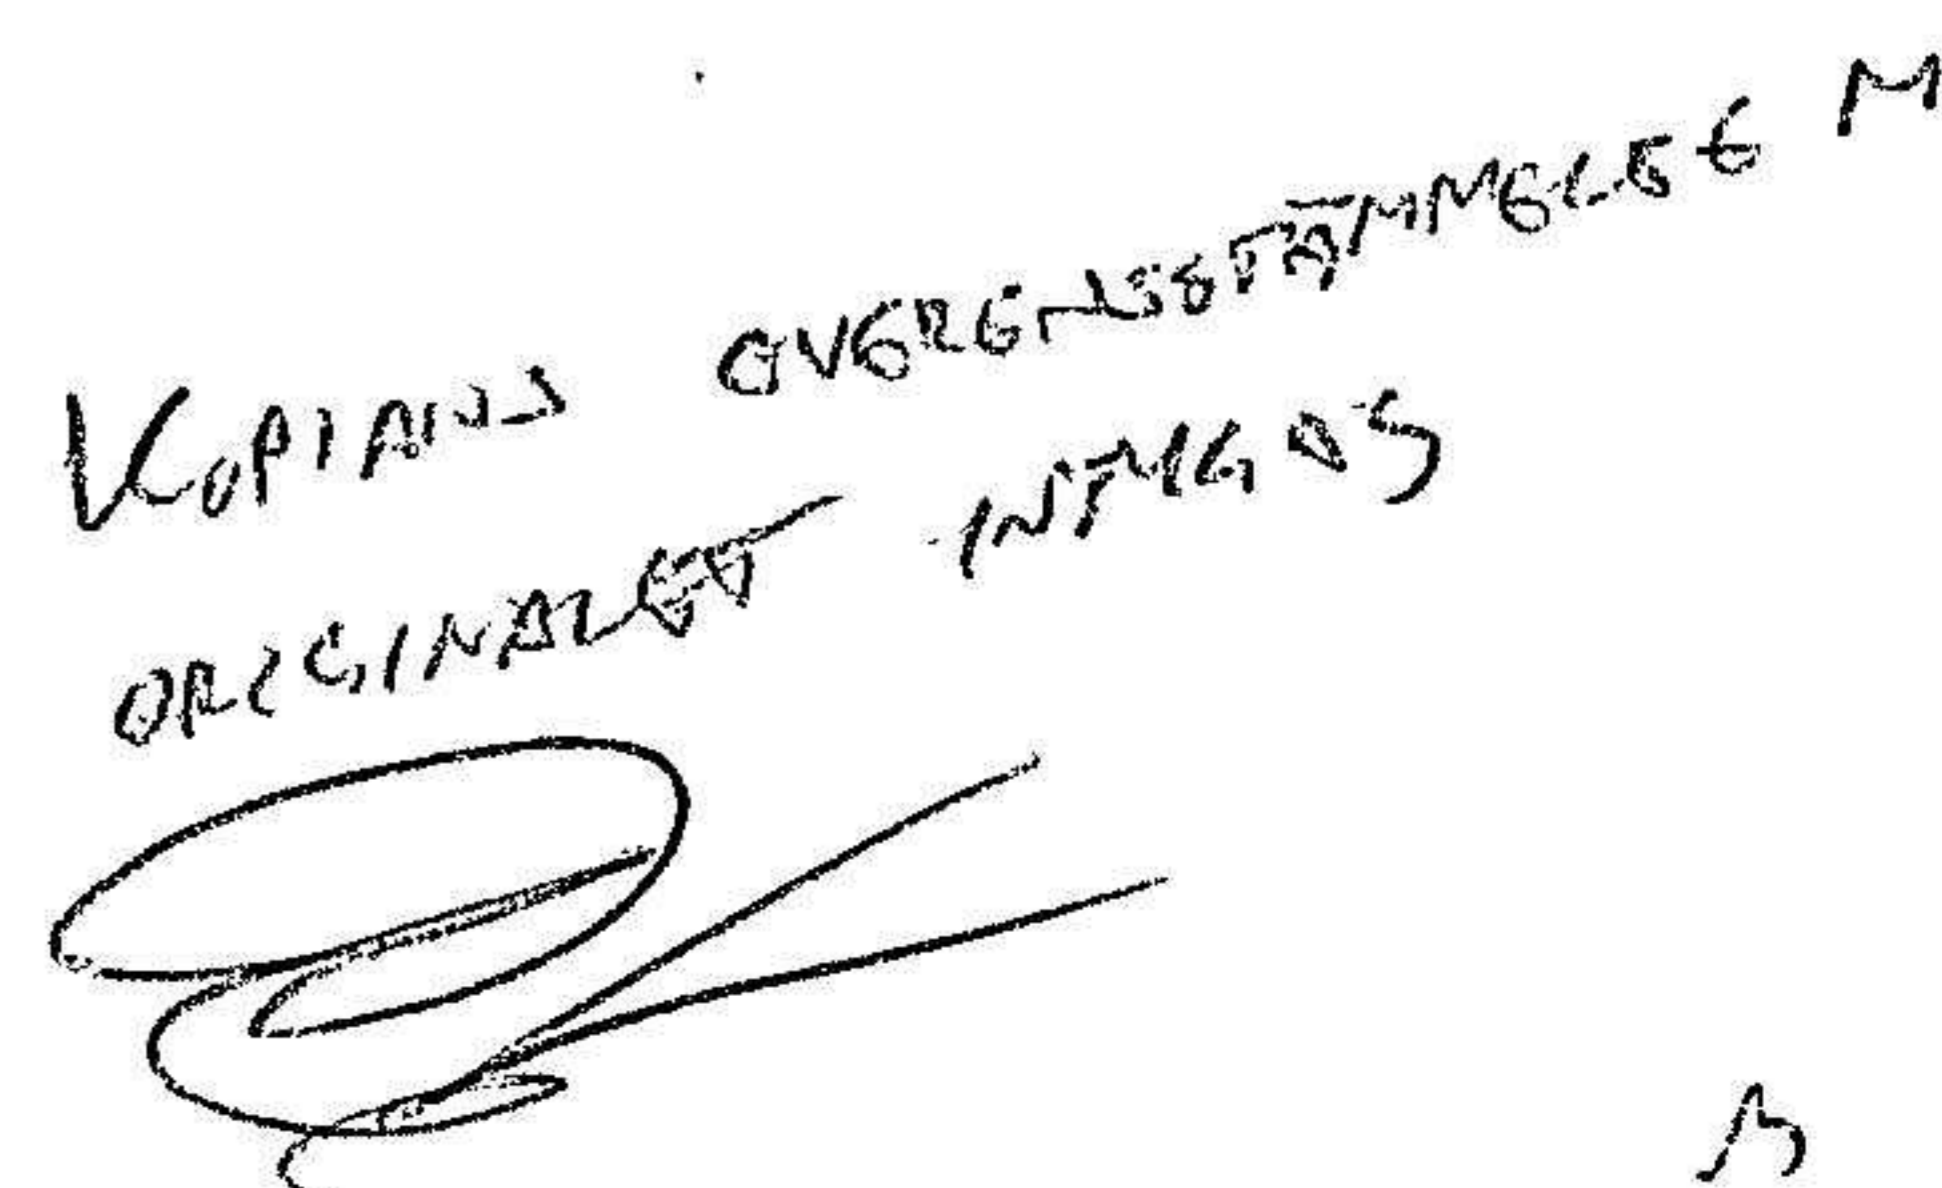 KOPIANS ÖVERENSSTÄMMELSE M
ORIGINALET INTYGAS